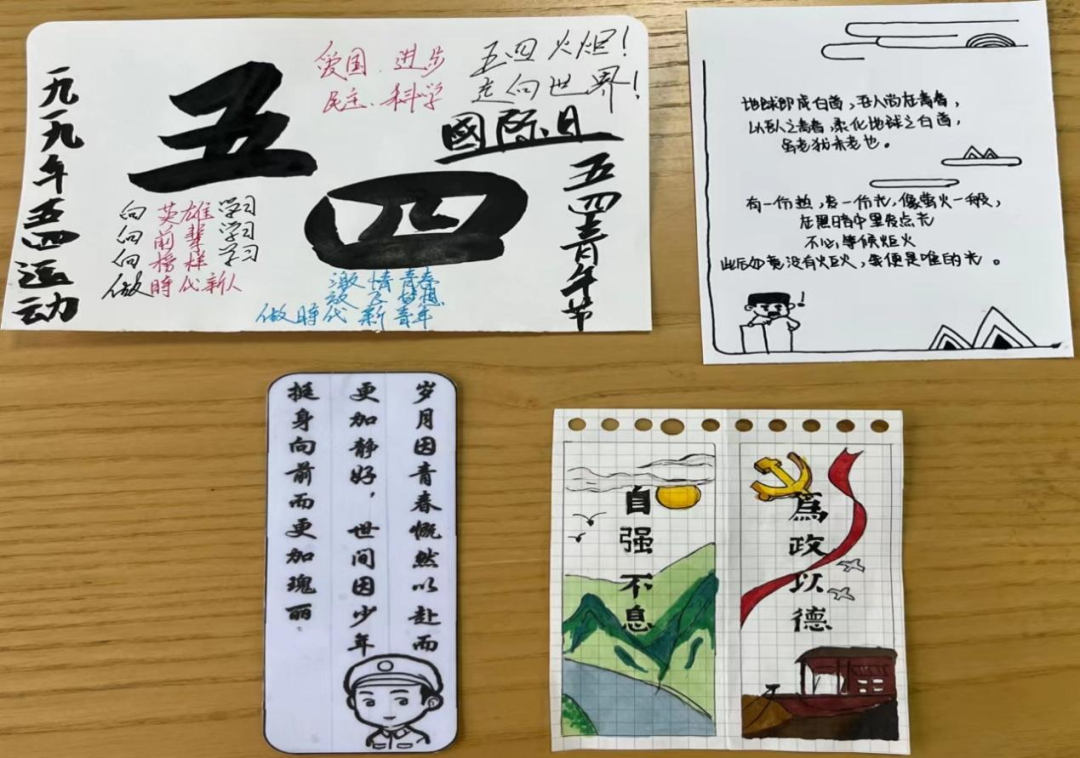 一九一九年五四运动
五四
爱国.进步
民主.科学
五四火炬!
走向世界!
國際日
五四青年节
向英雄学习
向前辈学习
向榜样学习
做時代新人
激情青春
放飞梦想
做時代新青年
地球即成白首,吾人尚在青春,
以吾人之青春,柔化地球之白首,
虽老犹未老也。
有一份热,发一份光,像萤火一般,
在黑暗中里发点光
不必等候炬火
此后如竟没有炬火,我便是唯的光。
岁月因青春慨然以赴而
更加静好,世间因少年
挺身向前而更加瑰丽。
自强不息
爲政以德